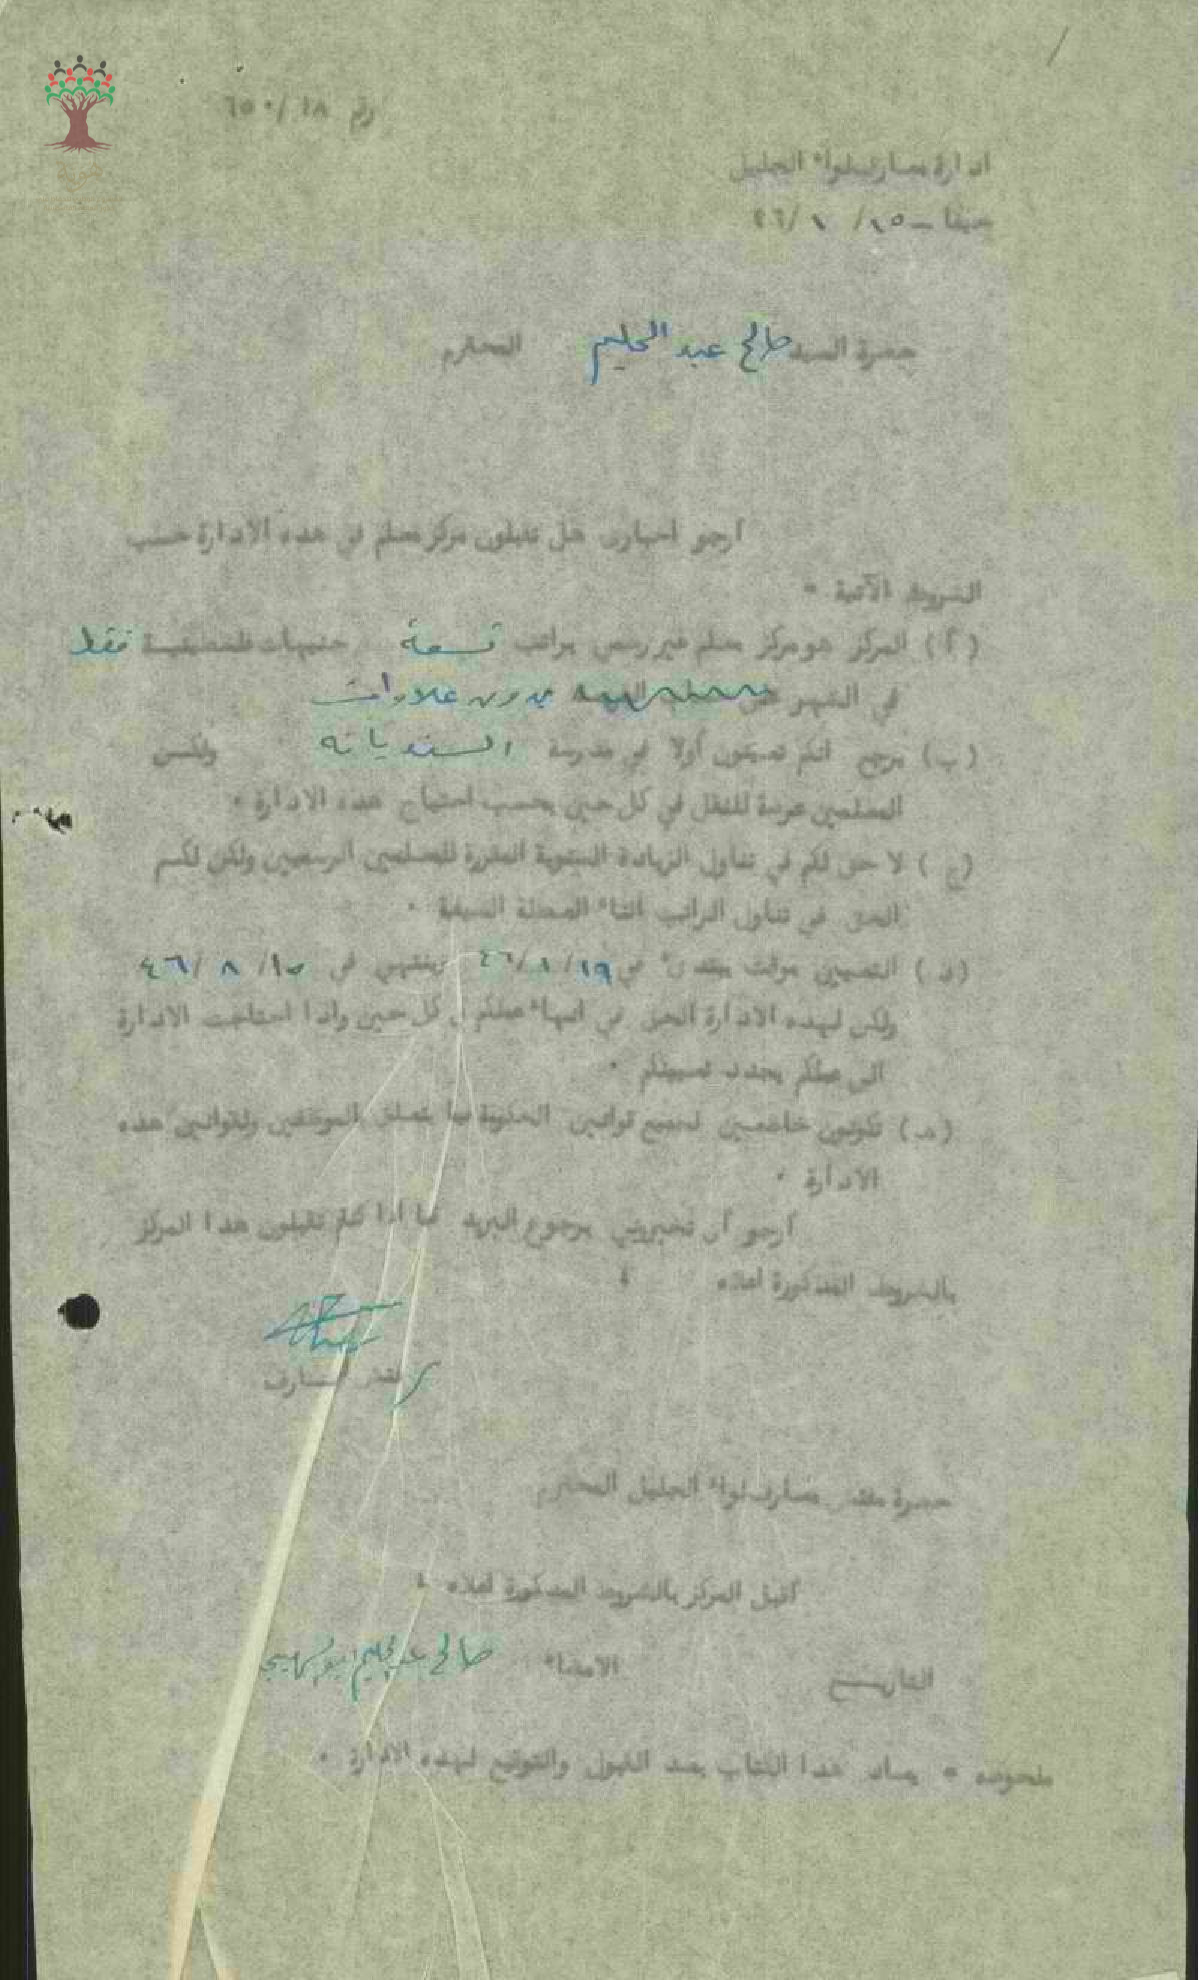 رقم ١٨ /٦٥٠
ادارة معارف لواء الجليل
حيفا – ١٥/ ١ /٤٦
حضرة السيد صالح عبد الحليم المحترم
أرجو اخباري هل تقبلون مركز معلم في هذه الادارة حسب
الشروط الآتية •
(أ) المركز هو مركز معلم غير رسمي براتب تسعة جنيهات فلسطينية فقط
في الشهر بدون علاوات
(ب) يرجح انكم تعينون أولا في مدرسة السنديانه ولكن
المعلمين عرضة للنقل في كل حين بحسب احتياج هذه الادارة •
(ج) لا حق لكم في تناول الزيادة السنوية المقررة للمعلمين الرسميين ولكن لكم
الحق في تناول الراتب اثناء العطلة الصيفية •
(د) التعيين موقت يبتدىء من ١٦/ ١/ ٤٦ وينتهي في ١٥/ ٨ /٤٦
ولكن لهذه الادارة الحق في انهاء عملكم في كل حين واذا احتاجت الادارة
الى عملكم يجدد تعيينكم •
(هـ) تكونون خاضعين لجميع قوانين الحكومة فيما يتعلق بالموظفين ولقوانين هذه
الادارة •
أرجو أن تخبروني برجوع البريد عما اذا كنتم تقبلون هذا المركز
بالشروط المذكورة اعلاه
مفتش المعارف
حضرة مفتش معارف لواء الجليل المحترم
أقبل المركز بالشروط المذكورة اعلاه
التاريـــخ الامضاء صالح عبد الحليم
ملحوظه • يعاد هذا الكتاب بعد القبول والتوقيع لهذه الادارة •